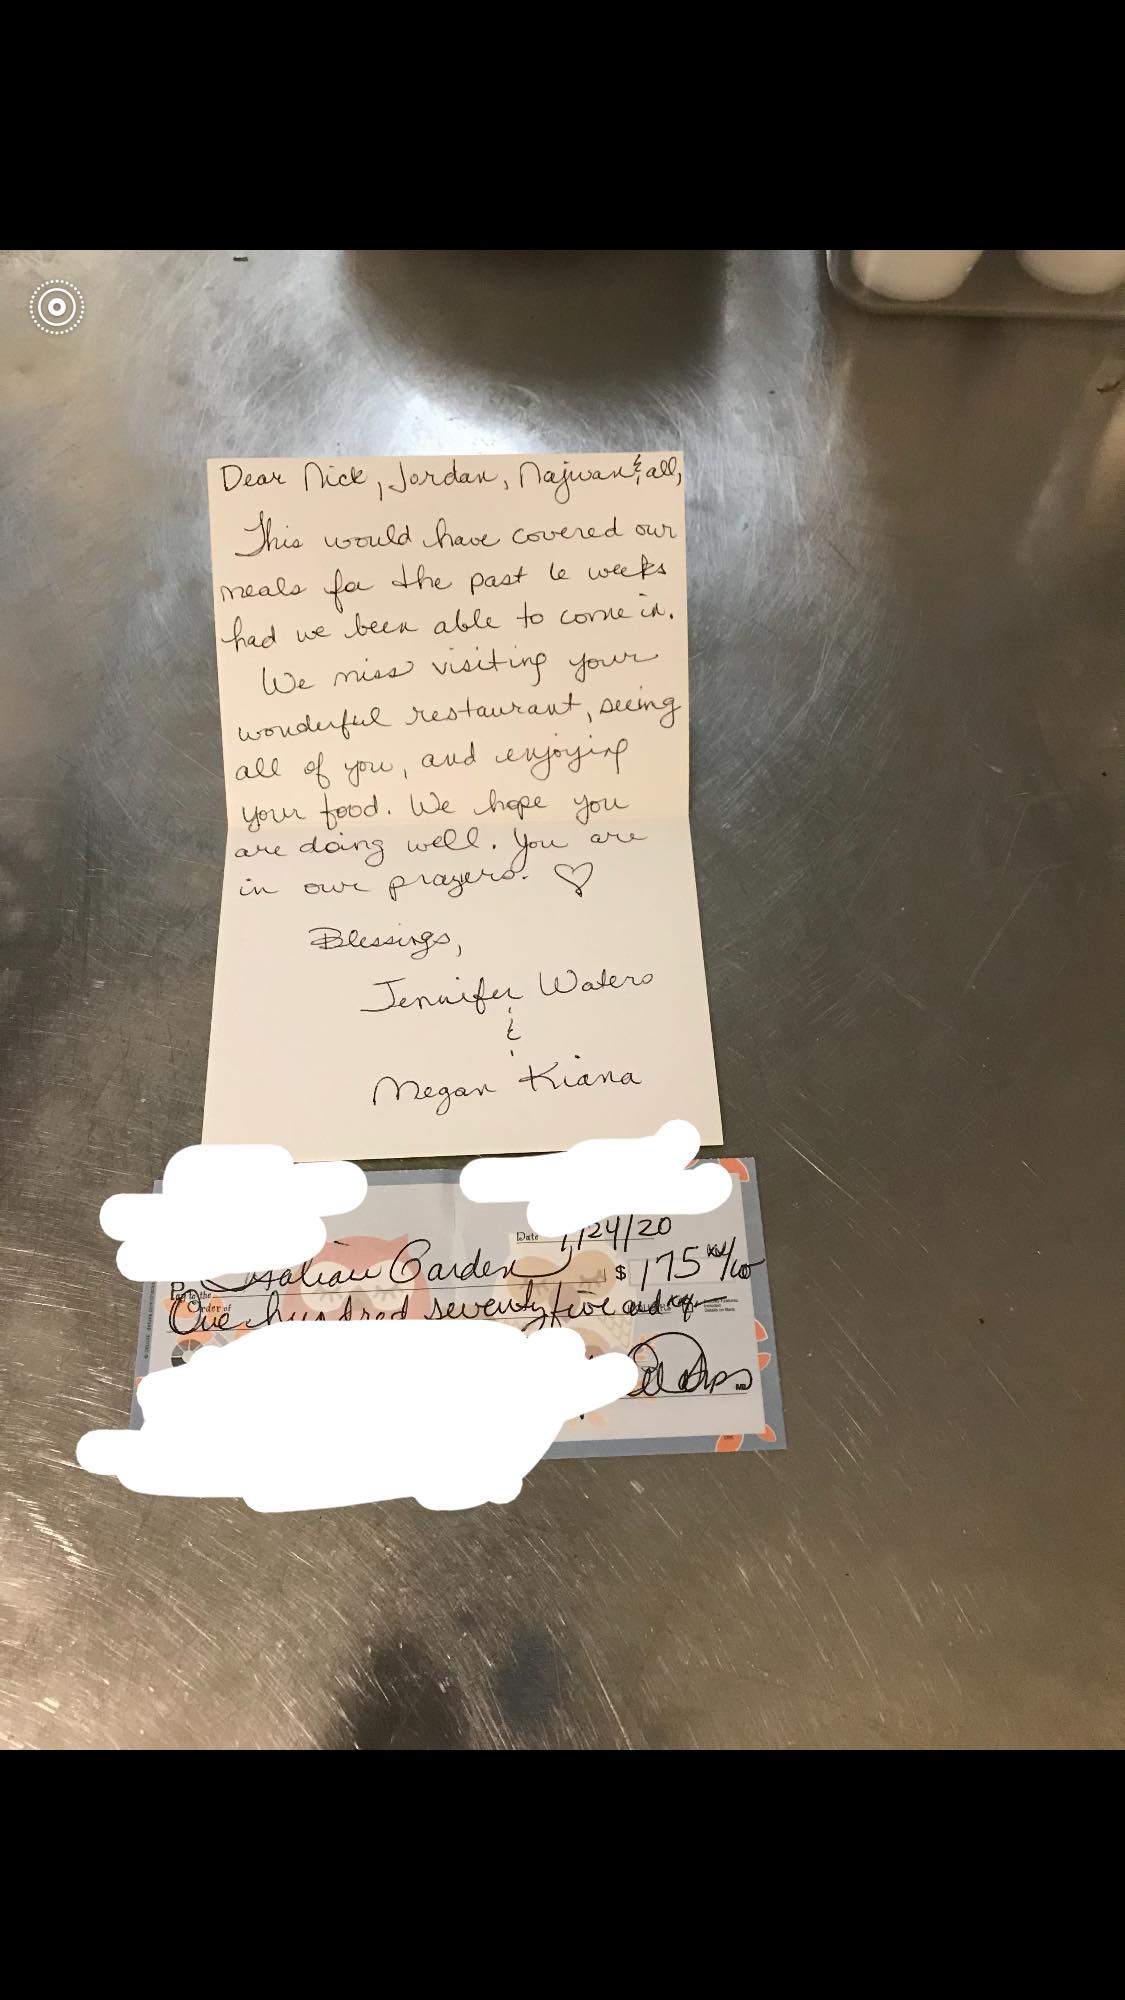 Dear Nick, Jordan, Najwan & all,
This would have covered our
meals for the past 6 weeks
had we been able to come in.
We miss visiting your
wonderful restaurant, seeing
all of you, and enjoying
your food. We hope you
are doing well. You are
in our prayers. ♡
Blessings,
Jennifer Waters
&
Megan Kiana
Date /24/20
Pay to the
Order of
Italian Garden $ 175
One hundred seventy five and